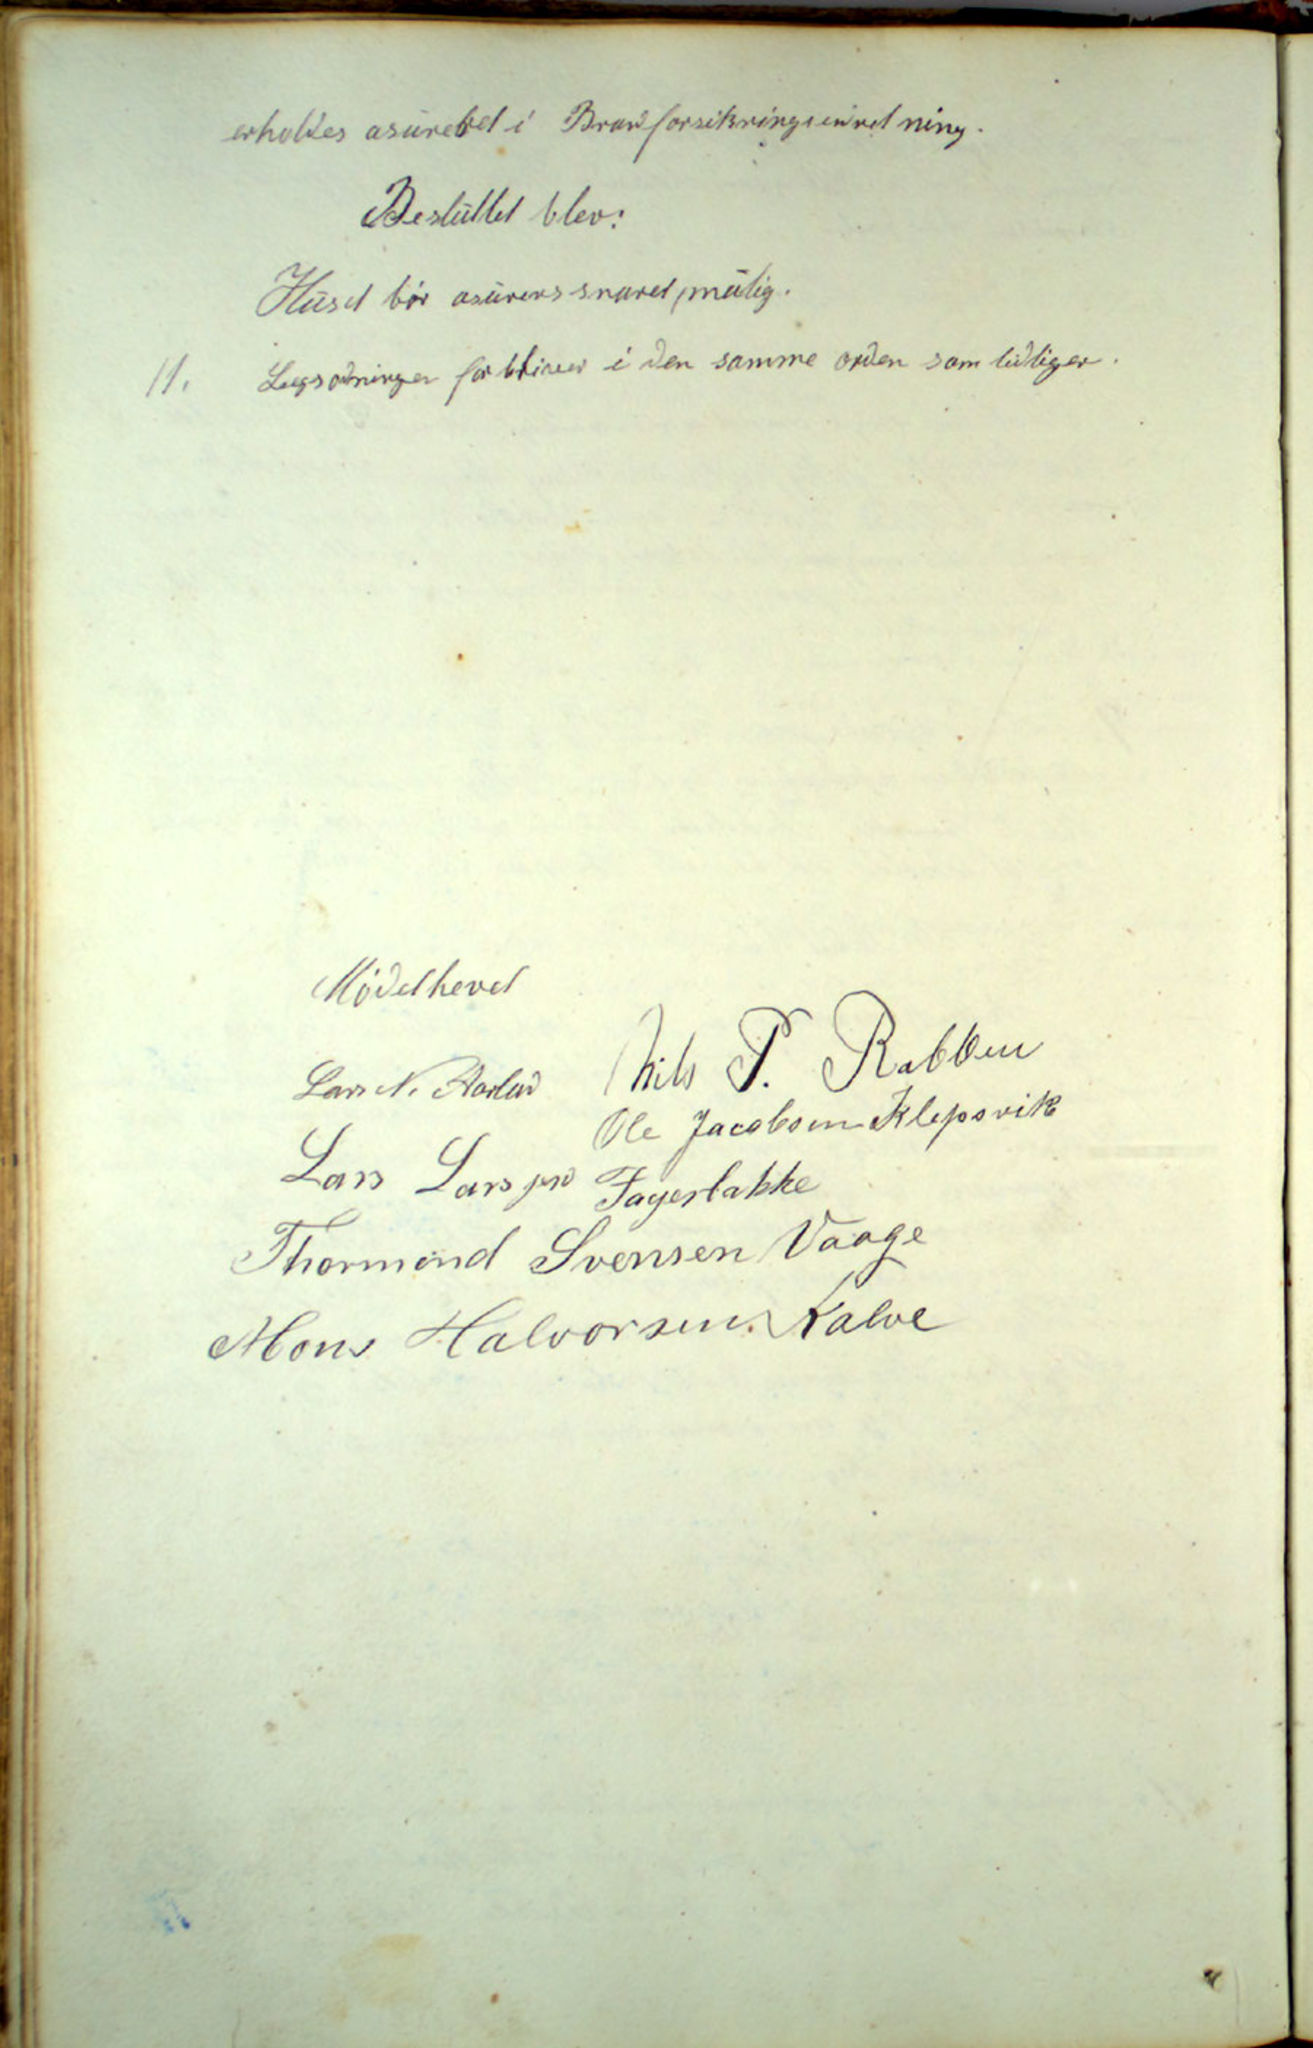 erholdes asüreret i Brandforsikringsindretning.
Beslüttet blev:
Hüset bör asüreres snarest mülig.
11. Lægsordningen forbliver i den samme orden som tidligere.
Mödet hevet
Lars N. Nils P. Rabben
Ole Jacobsen Klepsvik
Lars Lars Fagerbakke
Thormond Svensen Vaage
Mons Halvorsen Kalve